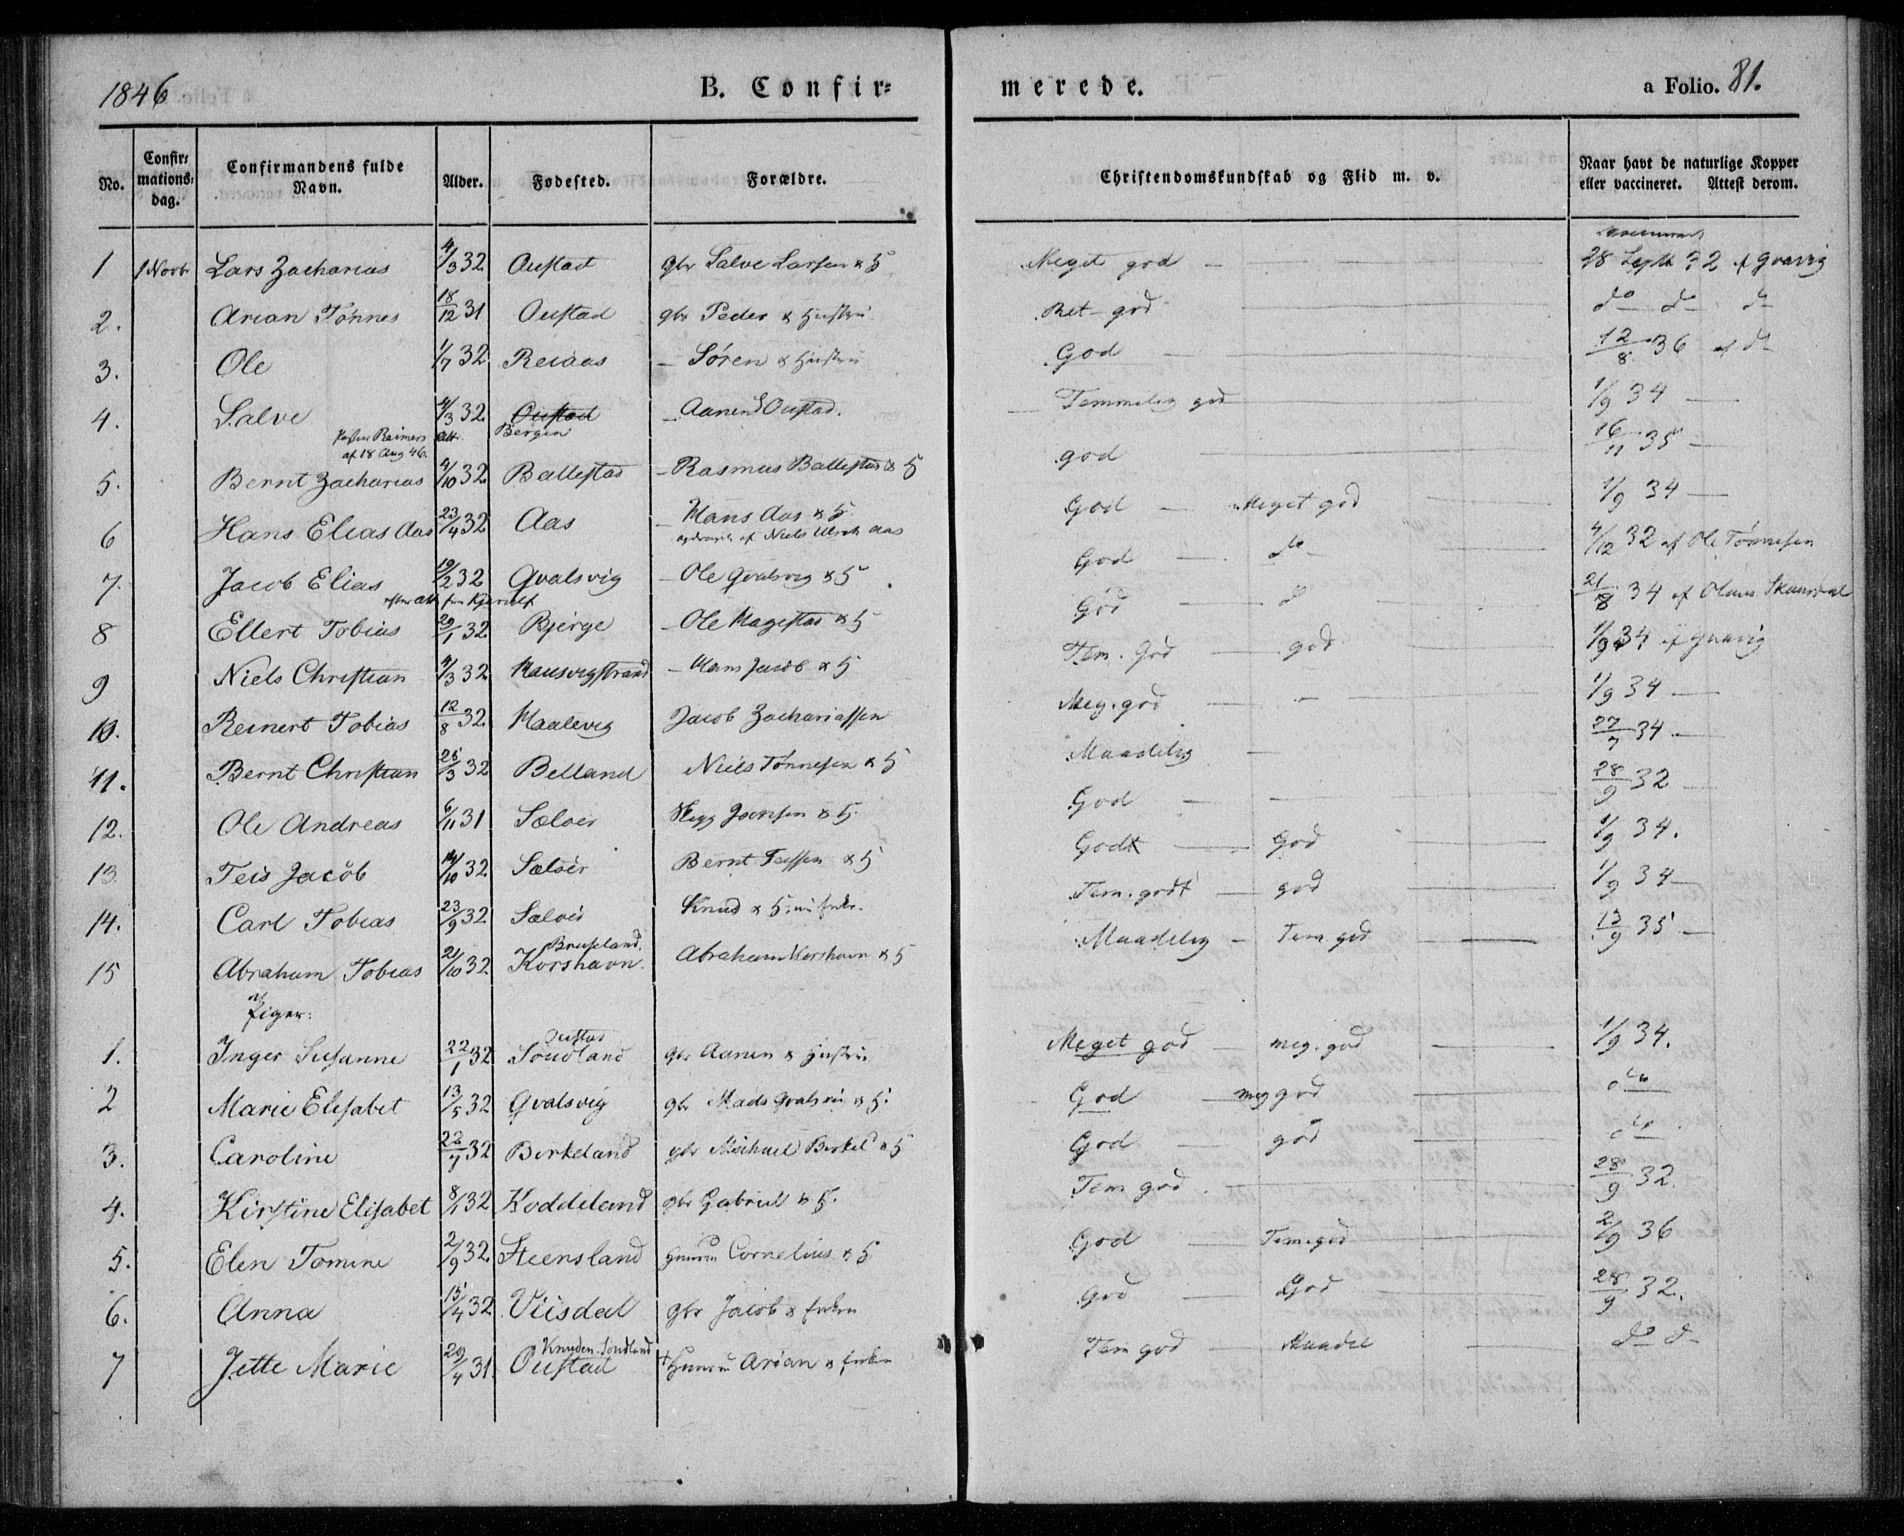 1846 B. Confir= merede. a Folio. 81.
No. Confir=mations=dag. Confirmandens fulde Navn. Alder. Fødested. Forældre. Christendomskundskab og Flid m. v. Naar havt de naturlige Kopper eller vaccineret. Attest derom.
1 1 Novbr Lars Zacharias 4/3 32 Oustad gbr Salve Larsen & H Meget god 28 Septb 32 af Gvavig
2. Arian Tønnes 18/12 31 Oustad gbr Peder & Hustru Ret god do do do
3. Ole 1/7 32 Reiaas Søren & Hustru God 12/8 36 af do
4. Salve 4/3 32 Oustad Bergen Aanen Oustad. Temmelig god 1/9 34
Pastor Reimers Att. af 18 Aug 46.
5. Bernt Zacharias 4/10 32 Ballestad Rasmus Ballestad & H god 16/11 35
6 Hans Elias Aas 23/4 32 Aas Hans Aas & H God Meget god 1/9 34
af Niels Ulrich Aas
7. Jacob Elias 19/2 32 Qvalsvig Ole Qvalsvig & H God do 4/12 32 af Ole Tønnesen
8 Ellert Tobias 29/1 32 Bjerge Ole Hagestad & H God do 21/8 34 af Olaus
9 Niels Christian 4/3 32 Hausvigstrand Hans Jacob & H Tem. God god 1/9 34 af Gvavig
10. Reinert Tobias 12/8 32 Haalevig Jacob Zachariassen Meg. god 1/9 34
11. Bernt Christian 25/3 32 Belland Niels Tønnesen & H Maadelig 27/7 34
12. Ole Andreas 6/11 31 Sælør & H God 28/9 32
13 Teis Jacob 14/10 32 Sælør Bernt Teissen & H Godt God 1/9 34.
14. Carl Tobias 23/9 32 Sælør Knud & H Tem. godt god 1/9 34
15 Abraham Tobias 21/10 32 Bruseland Korshavn. Abraham Korshavn & H Maadelig Tem. god 13/9 35
Piger:
1. Inger Susanne 22/1 32 Oustad Soudland gbr Aanen & Hustru Meget god meg. god 1/9 34.
2 Marie Elisabet 13/5 32 Qvalsvig gbr Mads Qvalsvig & H: God meg god do
3. Caroline 22/7 32 Birkeland gbr Michael Birkel & H God god do
4. Kirstine Elisabet 8/1 32 Koddeland gbr Gabriel & H. Tem god 28/9 32.
5. Elen Tomine 2/9 32 Steensland Huusm Cornelius & H God Tem. god 2/9 36
6. Anna 15/4 32 Viisdal gbr Jacob & God God 28/9 32.
7 Jette Marie 29/4 31. Knuden Soudland Oustad Huusm Arian & Tem god Maadel do do